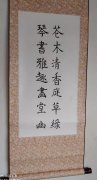 花木清香庭草綠
琴書雅趣畫堂幽